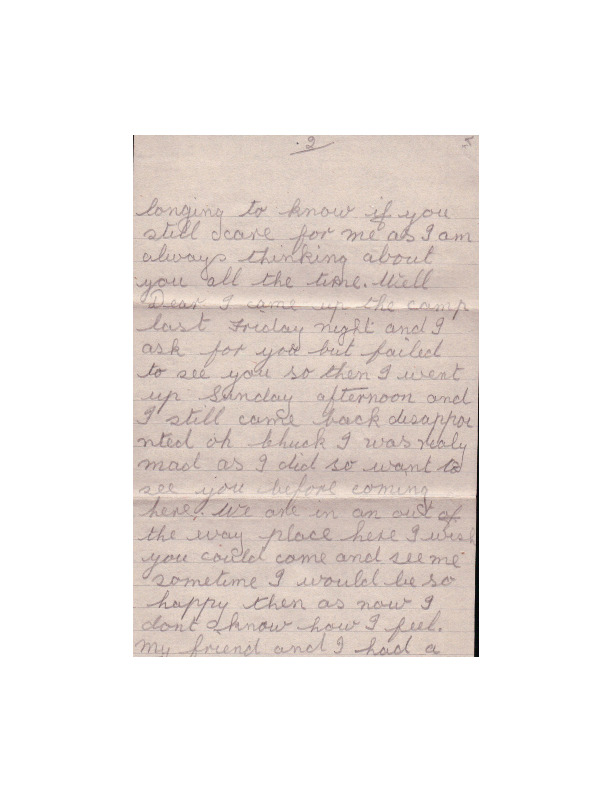 2
longing to know if you
still scare for me as I am
always thinking about
you all the time. Well
Dear I came up the camp
last Friday night and I
ask for you but failed
to see you so then I went
up Sunday afternoon and
I still came back disappoi
nted oh Chuck I was realy
mad as I did so want to
see you before coming
here. We are in an out of
the way place here I wish
you could come and see me
sometime I would be so
happy then as now I
dont know how I feel.
My friend and I had a